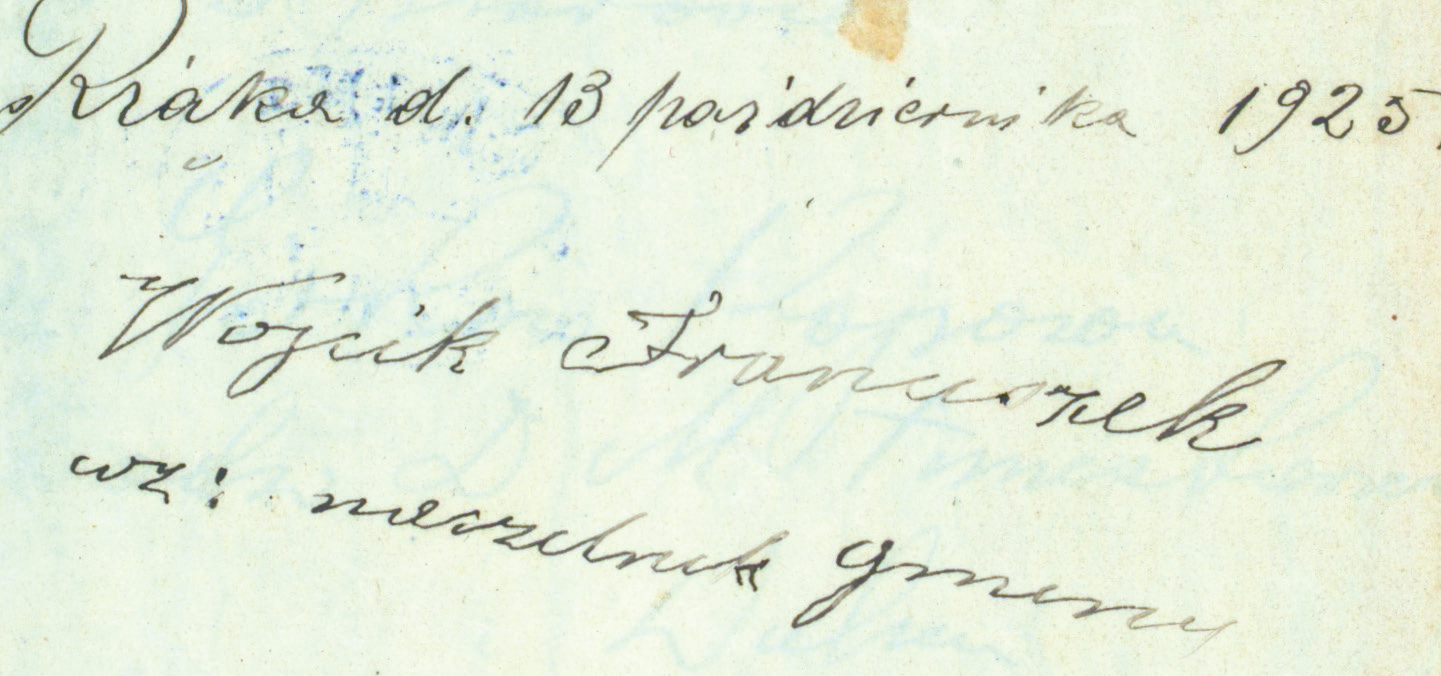 d. 13 października 1925.
Wojcik Franciszek
wz: naczelnik gminy